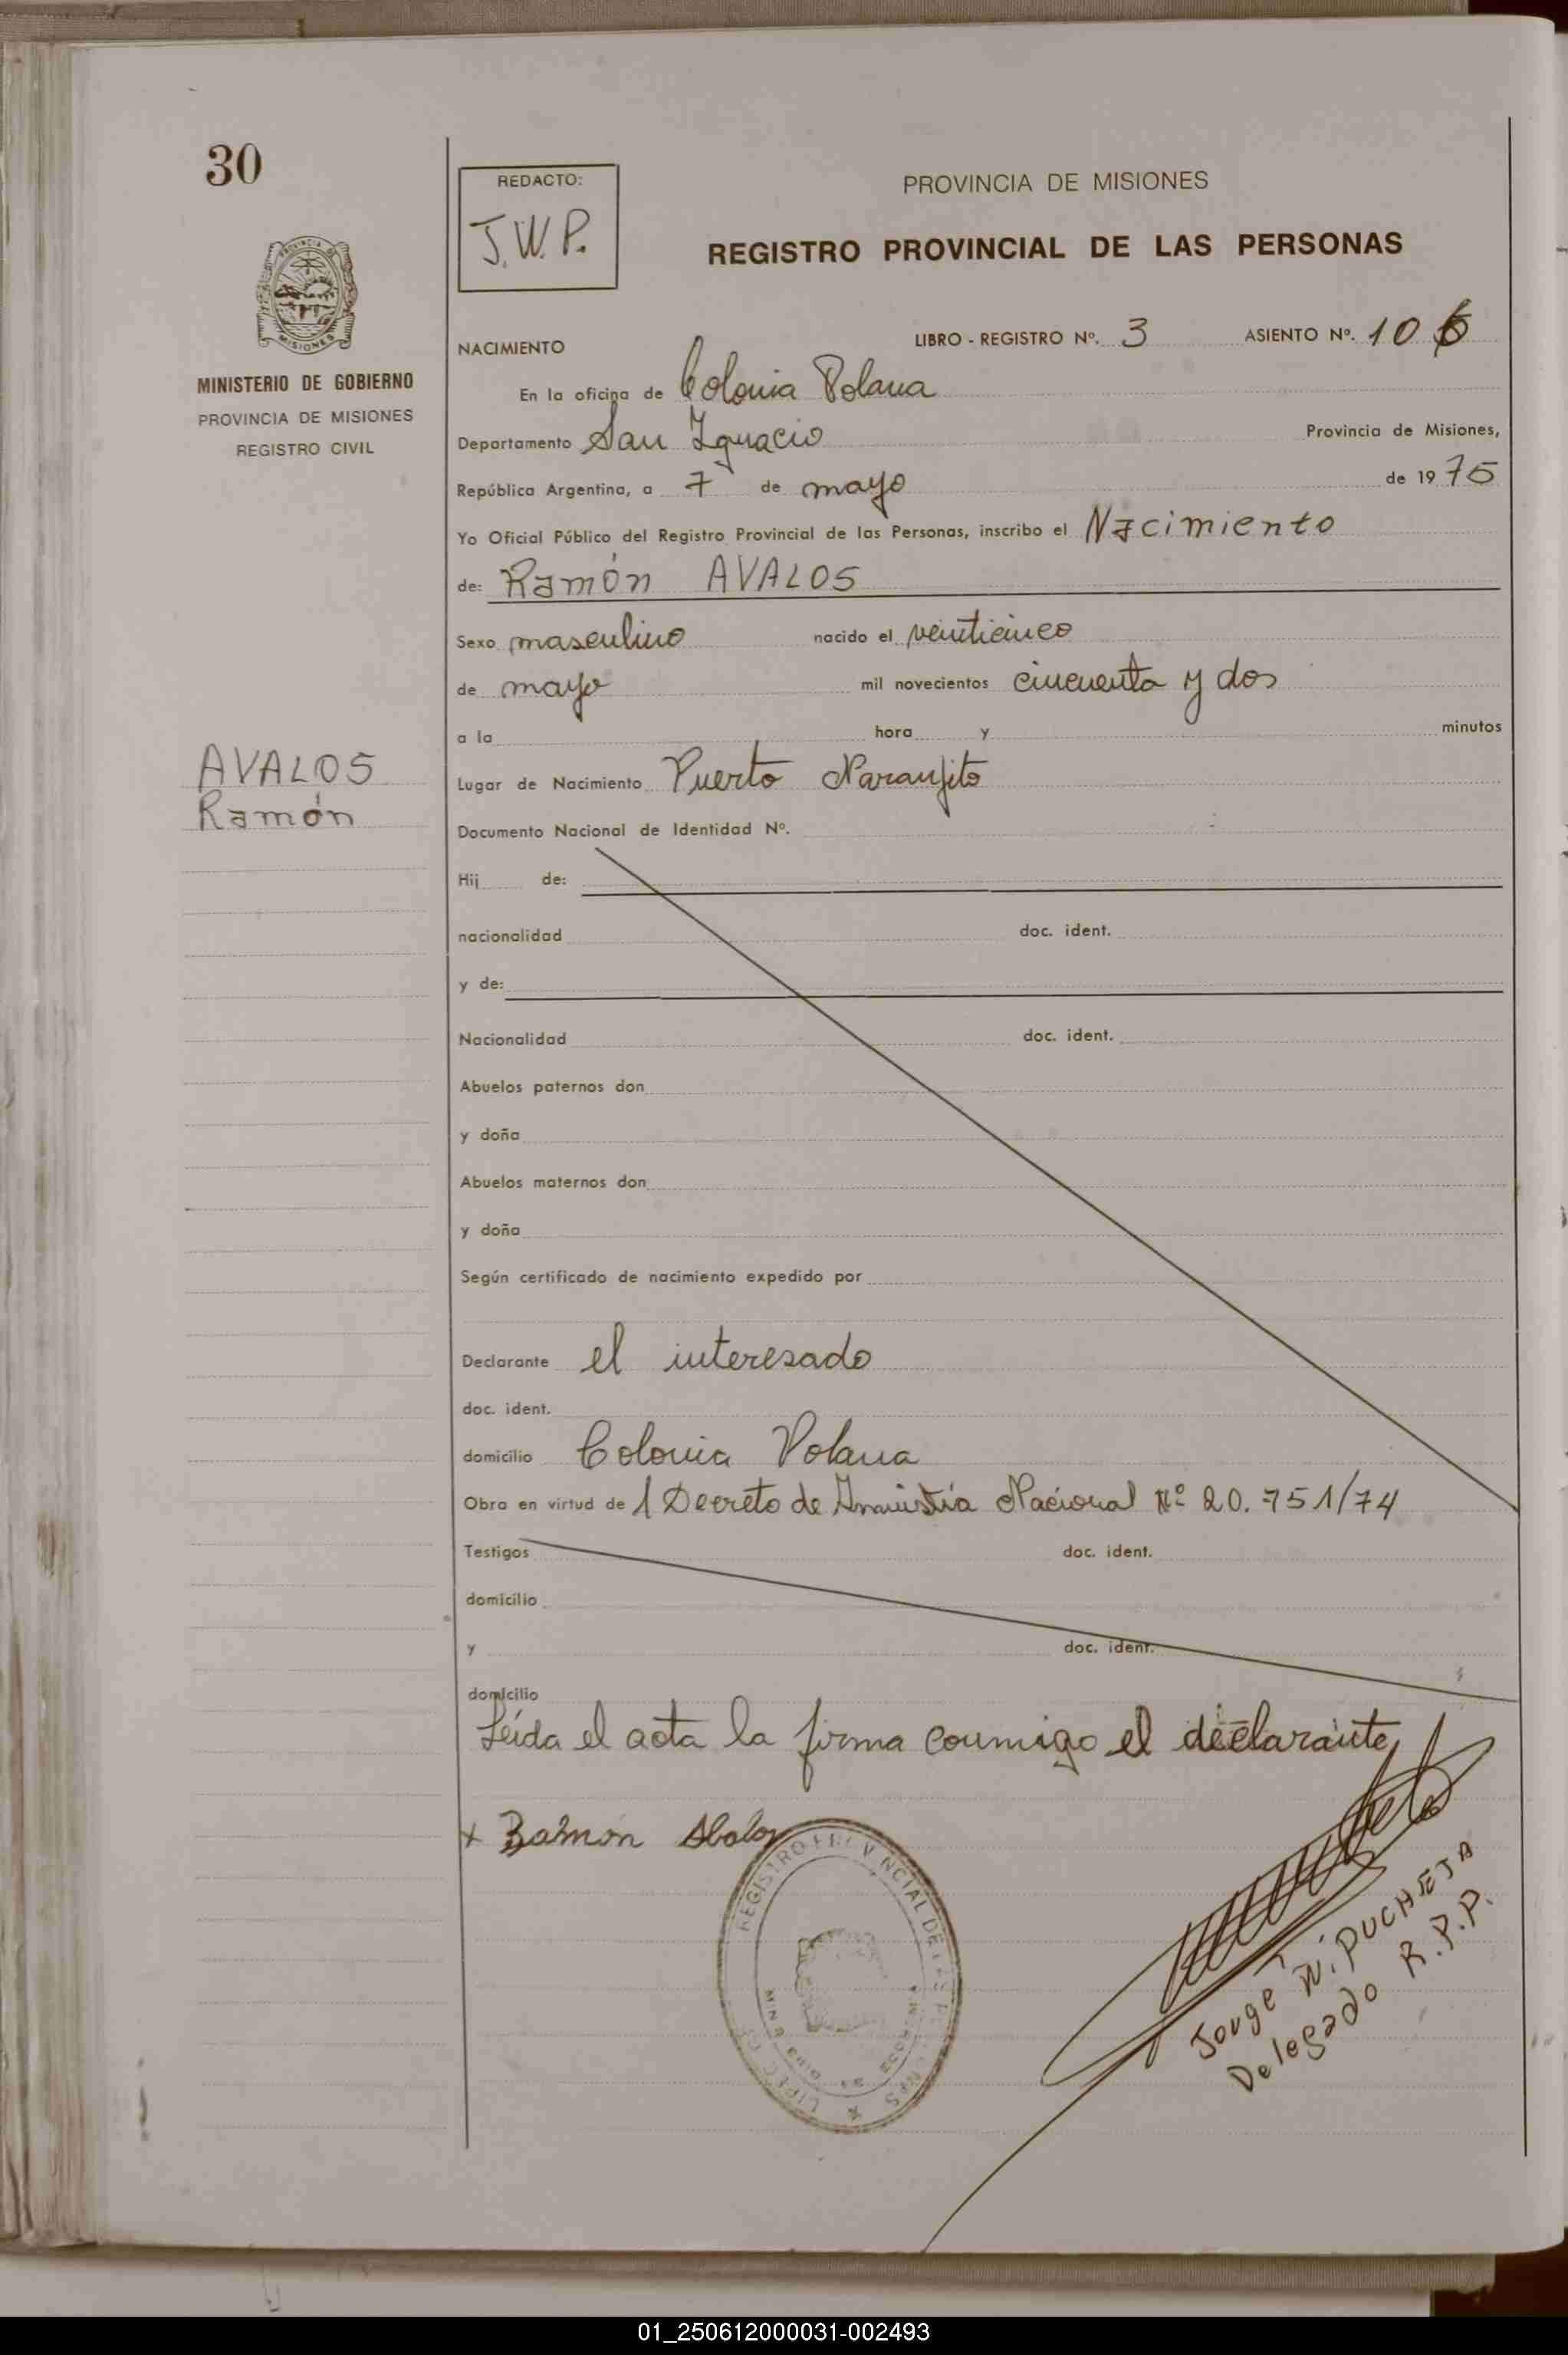 30
REDACTO:
J.W.P.
PROVINCIA DE MISIONES
REGISTRO PROVINCIAL DE LAS PERSONAS
MISIONES
MINISTERIO DE GOBIERNO
PROVINCIA DE MISIONES
REGISTRO CIVIL
NACIMIENTO LIBRO - REGISTRO Nº. 3 ASIENTO Nº. 106
En la oficina de Colonia Polana
Departamento San Ignacio Provincia de Misiones,
República Argentina, a 7 de mayo de 1975
Yo Oficial Público del Registro Provincial de las Personas, inscribo el Nacimiento
de: Ramón AVALOS
Sexo masculino nacido el veinticinco
de mayo mil novecientos cincuenta y dos
a la hora y minutos
AVALOS
Ramón
Lugar de Nacimiento Puerto Naranjito
Documento Nacional de Identidad Nº.
Hij de:
nacionalidad doc. ident.
y de:
Nacionalidad doc. ident.
Abuelos paternos don
y doña
Abuelos maternos don
y doña
Según certificado de nacimiento expedido por
Declarante el interesado
doc. ident.
domicilio Colonia Polana
Obra en virtud de l Decreto de Amnistía Nacional Nº 20.751/74
Testigos doc. ident.
domicilio
y doc. ident.
domicilio
Leída el acta la firma conmigo el declarante
x Ramón Abalos
REGISTRO PROVINCIAL DE LAS PERSONAS
Jorge W. PUCHETA
Delegado R.P.P.
01_250612000031-002493